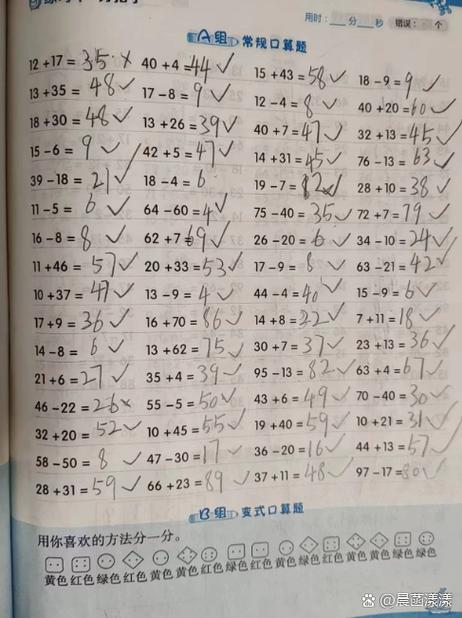 用时：__分__秒 错误：__个
A组 常规口算题
12+17=35× 40+4=44✓ 15+43=58✓ 18-9=9✓
13+35=48✓ 17-8=9✓ 12-4=8✓ 40+20=60✓
18+30=48✓ 13+26=39✓ 40+7=47✓ 32+13=45✓
15-6=9✓ 42+5=47✓ 14+31=45✓ 76-13=63✓
39-18=21✓ 18-4=6 19-7=12✓ 28+10=38✓
11-5=6✓ 64-60=4✓ 75-40=35✓ 72+7=79✓
16-8=8✓ 62+7=69✓ 26-20=6✓ 34-10=24✓
11+46=57✓ 20+33=53✓ 17-9=8✓ 63-21=42✓
10+37=47✓ 13-9=4✓ 44-4=40✓ 15-9=6✓
17+9=36✓ 16+70=86✓ 14+8=22✓ 7+11=18✓
14-8=6✓ 13+62=75✓ 30+7=37✓ 23+13=36✓
21+6=27✓ 35+4=39✓ 95-13=82✓ 63+4=67✓
46-22=26× 55-5=50✓ 43+6=49✓ 70-40=30✓
32+20=52✓ 10+45=55✓ 19+40=59✓ 10+21=31✓
58-50=8✓ 47-30=17✓ 36-20=16✓ 44+13=57✓
28+31=59✓ 66+23=89✓ 37+11=48✓ 97-17=80✓
B组 变式口算题
用你喜欢的方法分一分。
黄色 红色 绿色 红色 黄色 黄色 红色 绿色 红色 黄色 绿色 红色 黄色 黄色 绿色 绿色
百家号/晨菡漾漾